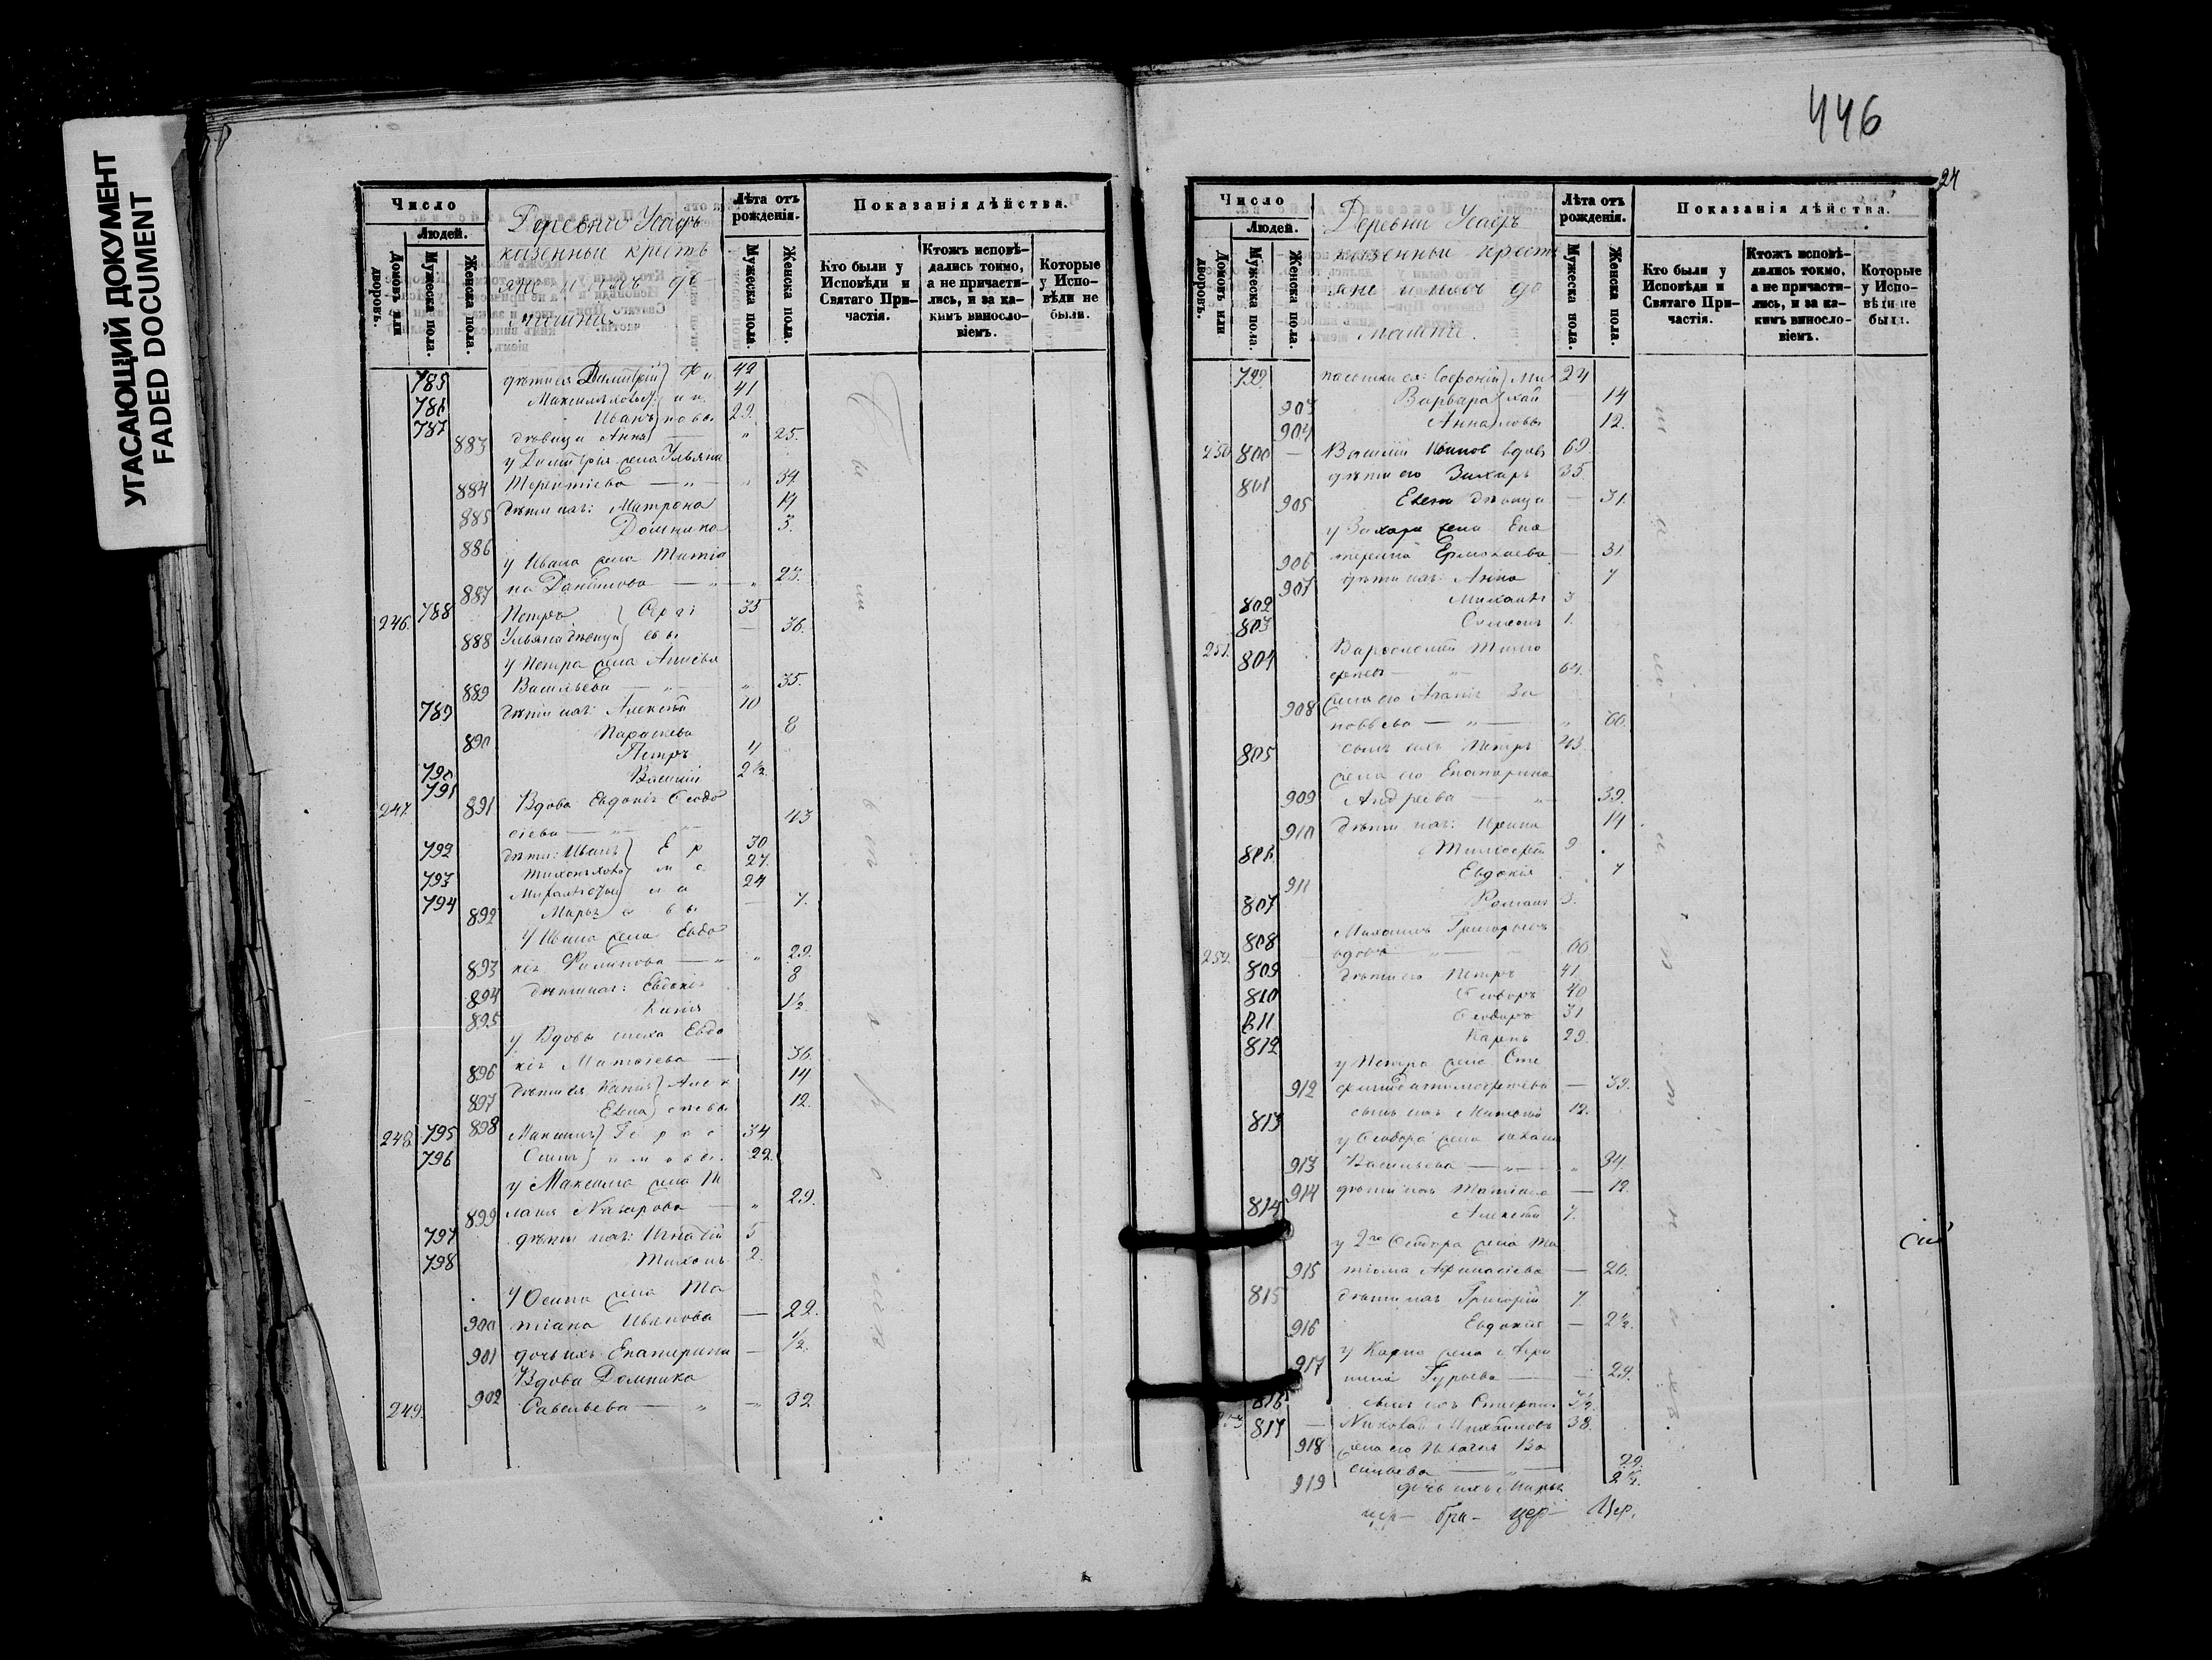 УГАСАЮЩИЙ ДОКУМЕНТ
FADED DOCUMENT
446
24
Число
Людей.
Домовъ или дворовъ.
Мужеска пола.
Женска пола.
Деревни Усадъ
казенныи кресть
яне и ихъ до
машніе
Лѣта отъ рожденія.
Мужеска пола.
Женска пола.
Показанія дѣйства.
Кто были у Исповѣди и Святаго Причастія.
Ктожъ исповѣдались токмо, а не причастились, и за какимъ винословіемъ.
Которые у Исповѣди не были.
785 дѣти ея Димитрій 42
786 Максимъ 41
787 Иванъ 29.
883 дѣвица Анна — " 25.
у Димитрія жена Ульяна
884 Терентіева — " — " 34
885 дѣти ихъ: Матрона 14
886 Домника 3.
у Ивана жена Татіа
887 на Данилова — " — " 23.
246. 788 Петръ 35
888 Ульяна дѣвица — 36.
у Петра жена Анисья
889 Васильева — " — " 35.
789 дѣти ихъ: Алексѣй 10
890 Параскева 8
790 Петръ 4
791 Василій 2½
247. 891 Вдова Евдокія Ѳеодо
сіева — " — " 43
792 дѣти: Иванъ 30
793 Тихонъ 27.
794 Михаилъ 24
892 Марья — 7.
У Ивана жена Евдо
893 кія Филипова — " " 29.
894 дѣти ихъ: Евдокія 8
895 Ксенія 1½
у Вдовы сноха Евдо
896 кія Матѳіева — 36.
897 дѣти ея Ксенія 14
898 Елена 12.
248. 795 Максимъ 34
796 Осипъ 22.
у Максима жена М
899 ланія Назарова — " 29.
797 дѣти ихъ: Игнатій 5
798 Тихонъ 2.
У Осипа жена Та
900 тіана Иванова — 22.
901 дочь ихъ Екатерина — ½.
Вдова Домника
249. 902 Савельева — " — " 32
Число
Людей.
Домовъ или дворовъ.
Мужеска пола.
Женска пола.
Деревни Усадъ
казенныи кресть
яне и ихъ до
машніе.
Лѣта отъ рожденія.
Мужеска пола.
Женска пола.
Показанія дѣйства.
Кто были у Исповѣди и Святаго Причастія.
Ктожъ исповѣдались токмо, а не причастились, и за какимъ винословіемъ.
Которые у Исповѣди не были.
799 пасынки ея: Софроній 24
903 Варвара — 14
904 Анна 12.
250 800 — Василій вдовъ 69
801 дѣти его Захаръ 35.
905 Елена дѣвица — 31.
у Захара жена Ека
906 терина Ермолаева — 31.
907 дѣти ихъ: Анна 7
802 Михаилъ 3
803 Симеонъ 1.
251. 804 Варѳоломей Тимо
ѳеевъ — " — 64.
908 жена его Агапія За
— " — " 60.
805 сынъ ихъ Петръ 43.
жена его Екатерина
909 Андреева — " 39.
910 дѣти ихъ: Ирина 14
806. Тимоѳей 9
911 Евдокія 7
807 Романъ 3.
808 Михаилъ Григорьевъ
252. вдовъ — " — 60
809 дѣти его Петръ 41.
810 Ѳеодоръ 40
811 Ѳеодоръ 31
812 Карпъ 29.
у Петра жена Сте
912 — 39.
813 сынъ ихъ 12.
у Ѳеодора жена
913 Васильева — " — " 34.
914 дѣти ихъ Татіана — 12.
814 Алексѣй 7.
у 2го Ѳеодора жена Та
915 тіана Афанасіева — 26.
815 дѣти ихъ Григорій 7.
916 Евдокія — 2½.
у Карпа жена Агри
917 пина Гурьева — 24.
816 сынъ ихъ
253 817 — Николай Михайловъ 38.
918 жена его Пелагія Ва
сильева — " — 29.
919 дочь ихъ Марья 2½.